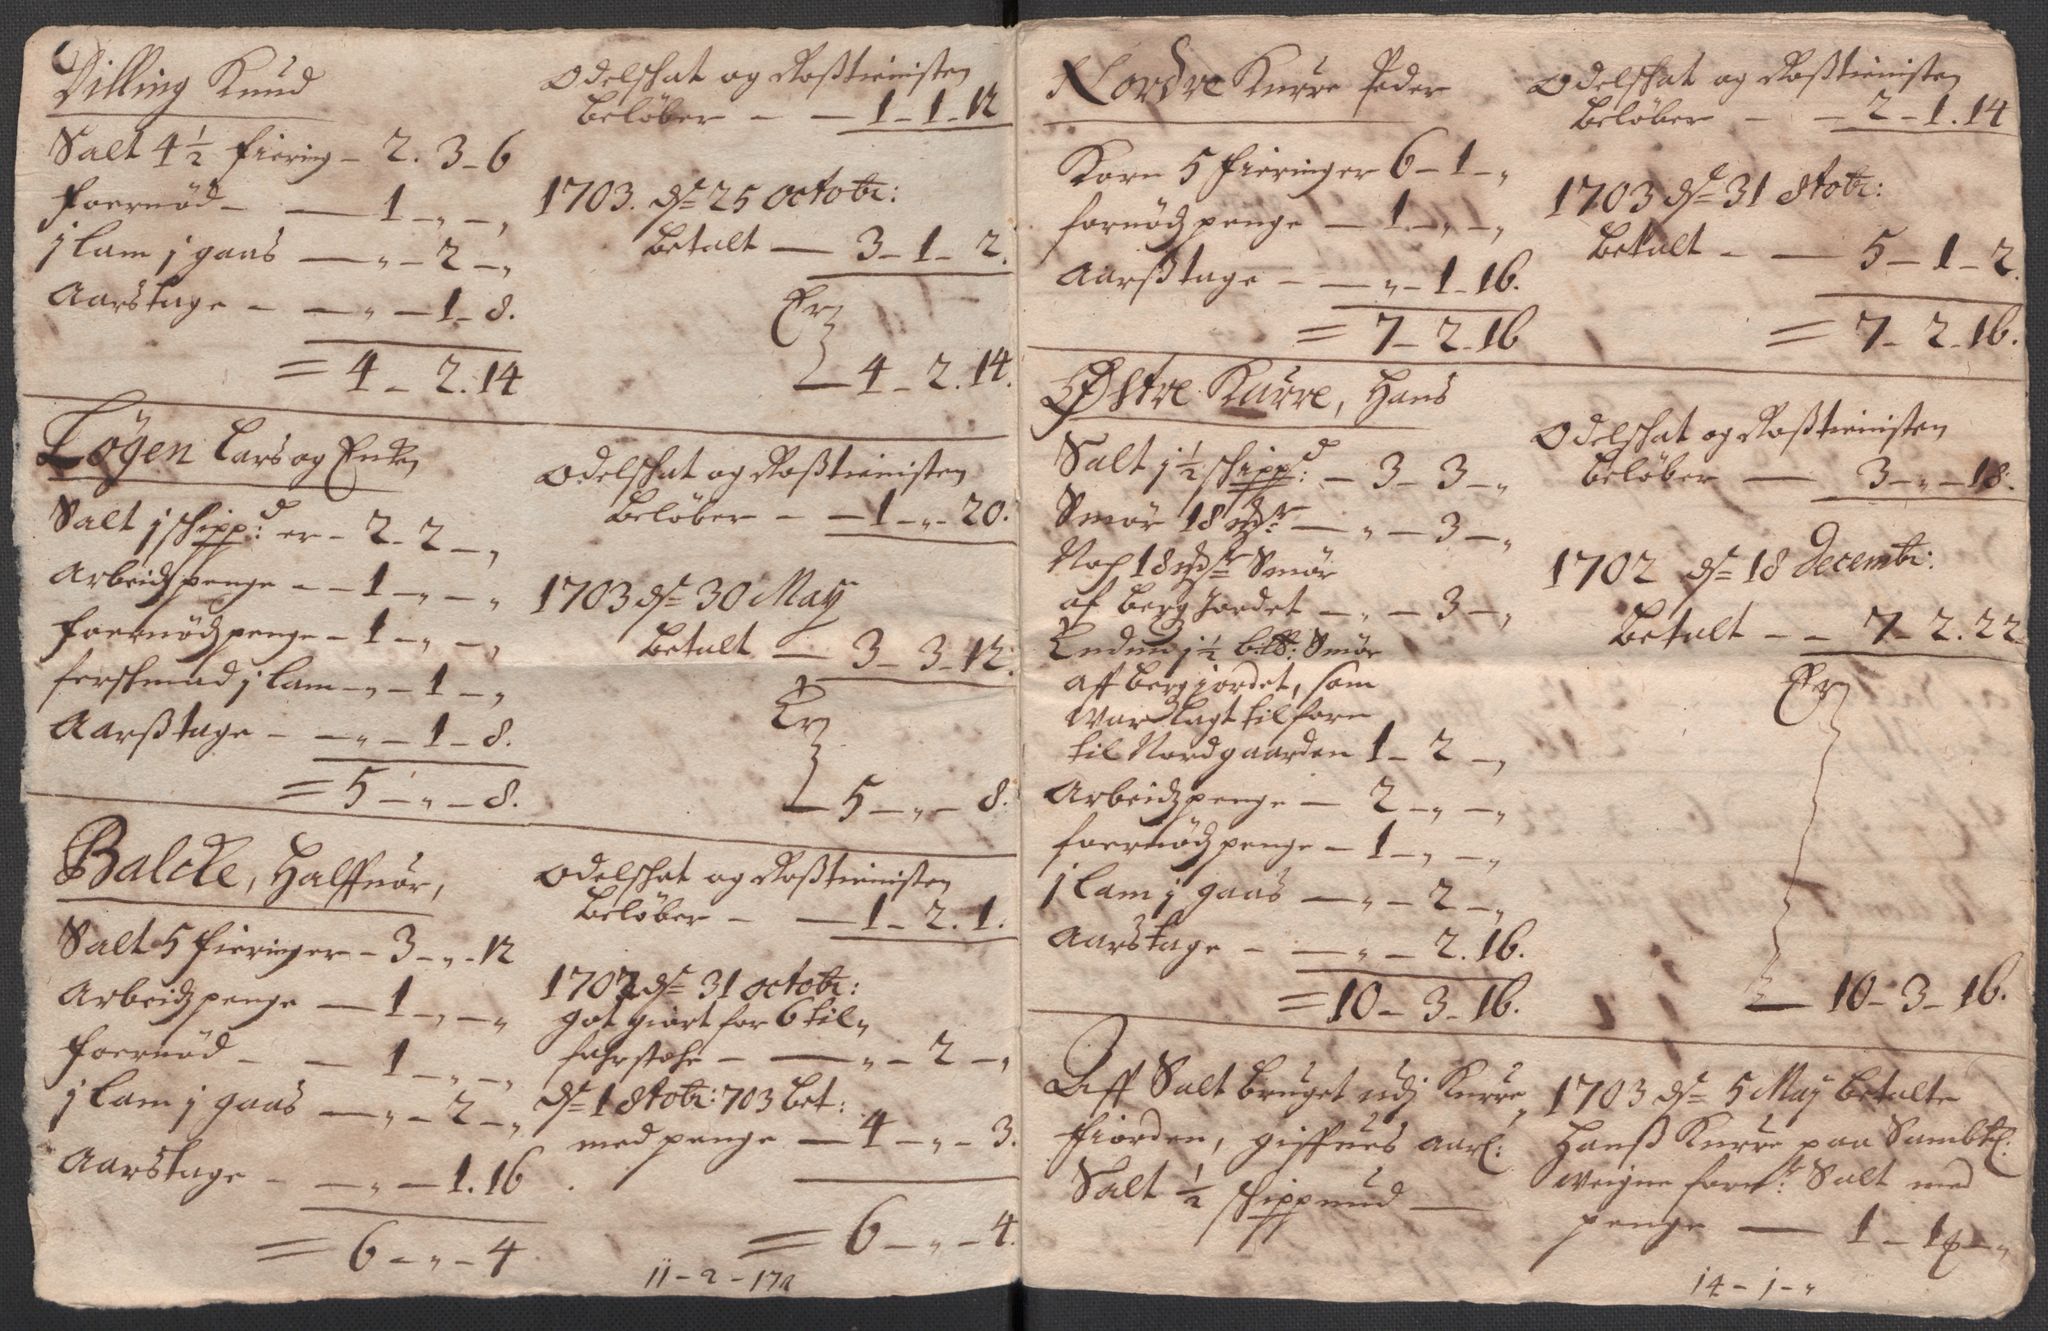 Dilling Knud
Salt 4½ fiering – 2. 3 – 6
foernød – — 1 – „ – „
j lam j gaas — „ – 2 – „
Aarstage – — „ — 1 – 8.
= 4 – 2. 14
Odelschat og Roßtienisten
beløber – — 1 – 1 – 12
1703. dn 25 octobr:
betalt — 3 – 1 – 2.
Er
4 – 2. 14.
Løgen Lars og Enken
Salt j schippd: er – 2 – 2 – „
Arbeidzpenge – – 1 – „ – „
foernødzpenge – 1 – „ – „
ferschmad j lam – „ – 1 – „
Aarßtage – — „ – 1 – 8.
= 5 – „ – 8.
Odelschat og Roßtienisten
beløber – — 1 – „ – 20.
1703 dn 30 May
betalt — 3 – 3 – 12.
Er
5 – „ – 8.
Balcke, Halffuor,
Salt 5 fieringer – 3 – „ – 12
Arbeidzpenge — 1 – „ – „
foernød – — 1 – „ – „
j lam j gaas — „ – 2 – „
Aarstage – — „ – 1. 16
= 6 – „ – 4
Odelschat og Roßtienisten
beløber – — 1 – 2. 1.
1702 dn 31 octobr:
got giort for 6 til„
— „ – 2 – „
dn 1 8tobr: 703 bet:
med penge — 4 – „ – 3.
= 6 – „ – 4.
11 – 2 – 17
Nordre Kurre Peder
Korn 5 fieringer 6 – 1 – „
fornødzpenge — 1 – „ – „
Aarßtage – — „ – 1 – 16.
= 7 – 2 – 16
Odelschat og Roßtienisten
beløber – — 2 – 1. 14
1703 dn 31 8tobr:
betalt – — 5 – 1 – 2.
= 7 – 2 – 16.
Østre Kurre, Hans
Salt j½ schippd: – 3 – 3 – „
Smør 18 — „ – 3 – „
Noch 18 Smør
af bergjordet – „ – 3 – „
Endnu j½ Smør
aff bergjordet, som
war lagt tilforn
til Nordgaarden 1 – 2 – „
Arbeidzpenge — 2 – „ – „
foernødzpenge – 1 – „ – „
j lam j gaas — „ – 2 – „
Aarstage – — „ – 2. 16.
= 10 – 3 – 16.
Odelschat og Roßtienisten
beløber — 3 – „ – 18.
1702 dn 18 Decembr:
betalt – – 7 – 2. 22
Er
10 – 3 – 16.
Aff Salt bruget udj Kurre„
fiorden, giffues aarl:
Salt ½ schippund —
1703 dn 5 May betalte
Hanß Kurre paa
weigne forne: Salt med
penge — 1 –
14 – 1 – „